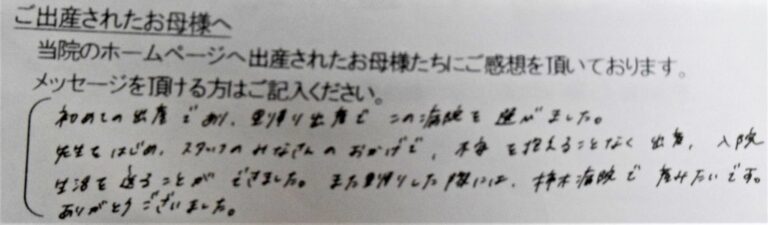 ご出産されたお母様へ
当院のホームページへ出産されたお母様たちにご感想を頂いております。
メッセージを頂ける方はご記入ください。
初めての出産であり、里帰り出産でこの病院を選びました。
先生をはじめ、スタッフのみなさんのおかげで、不安を抱えることなく出産、入院
生活を送ることができました。また里帰りした際には、柿木病院で産みたいです。
ありがとうございました。